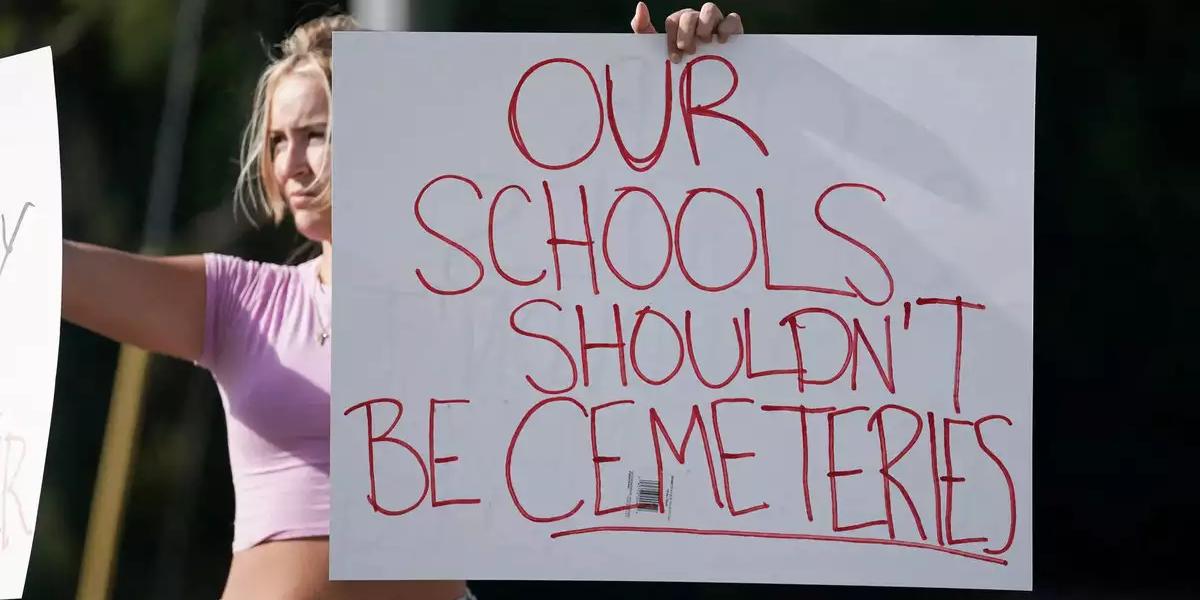 OUR
SCHOOLS
SHOULDN'T
BE CEMETERIES